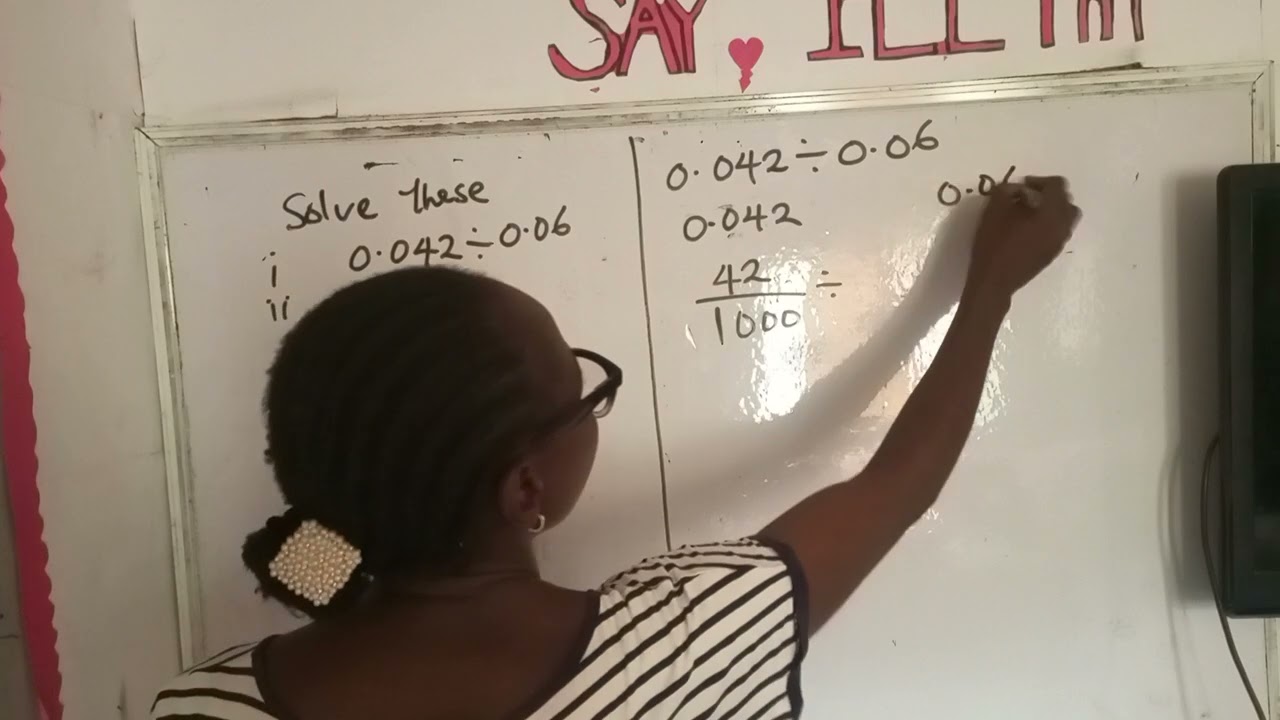 SAY, I'LL TRY
Solve These
i 0.042÷0.06
ii
0.042÷0.06
0.042 0.06
42 ÷
1000